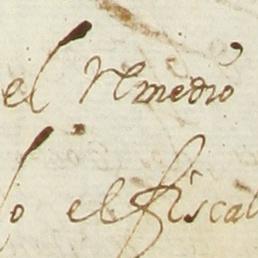 el Remedio
lo el fiscal